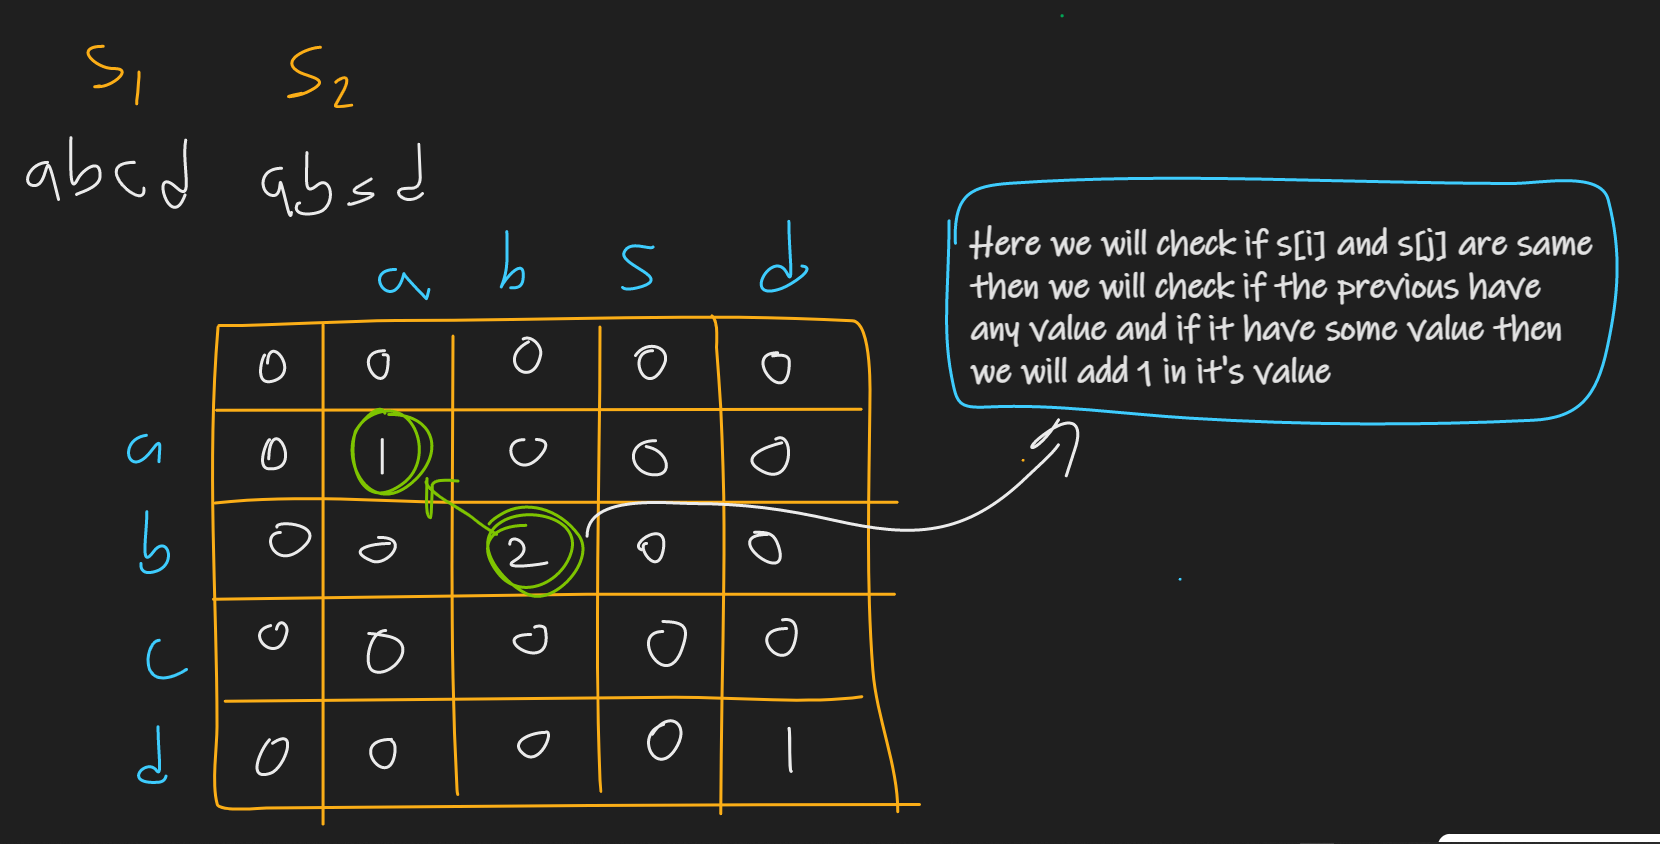 S1 S2
abcd absd
a b s d
0 0 0 0 0
a 0 1 0 0 0
b 0 0 2 0 0
c 0 0 0 0 0
d 0 0 0 0 1
Here we will check if s[i] and s[j] are same
then we will check if the previous have
any value and if it have some value then
we will add 1 in it's value